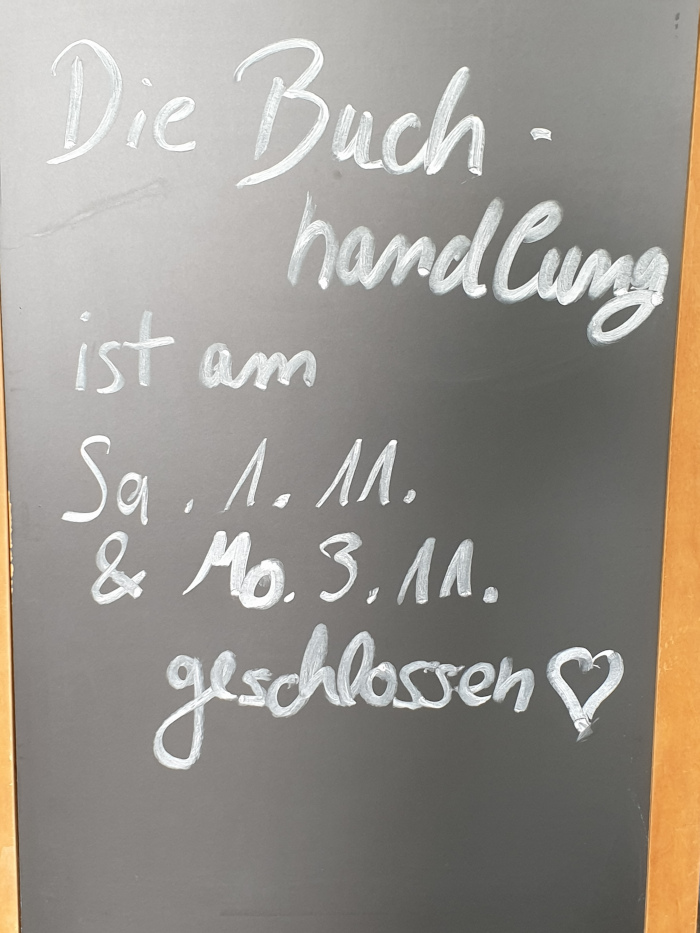 Die Buch-
handlung
ist am
Sa. 1. 11.
& Mo. 3. 11.
geschlossen♡